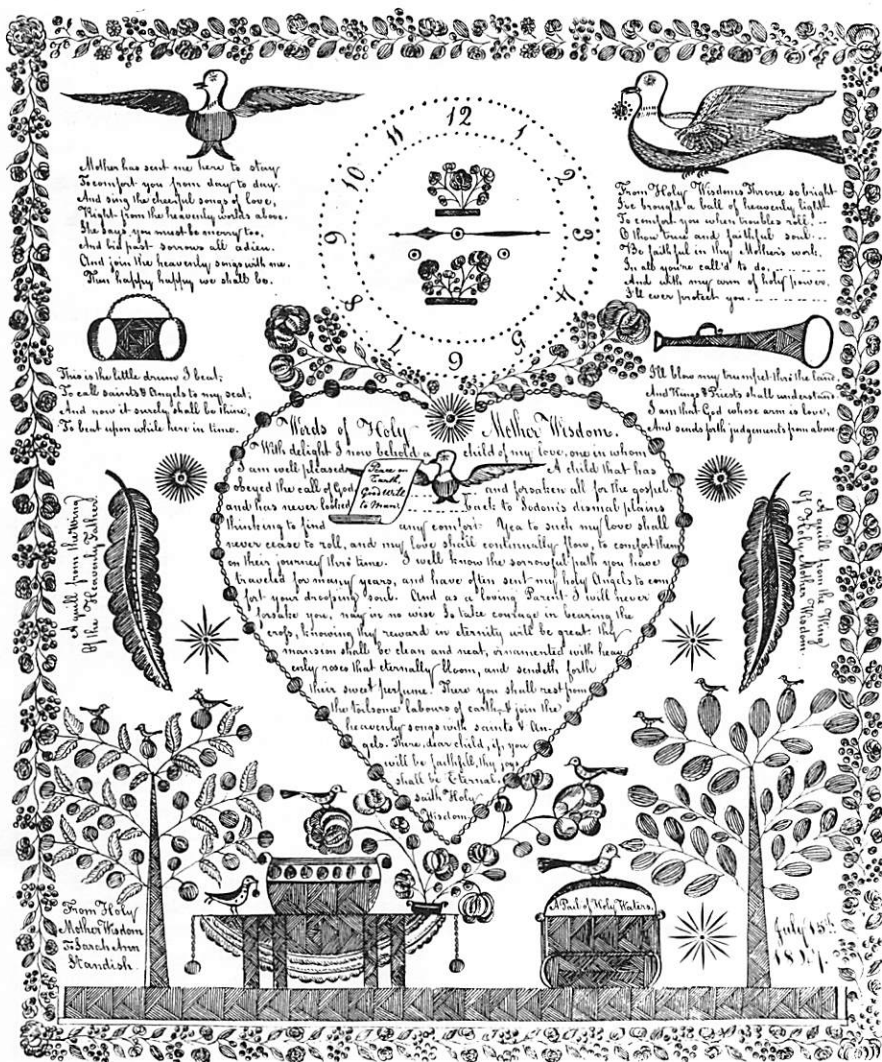 Mother has sent me here to stay
To comfort you from day to day.
And sing the cheerful songs of love,
Right from the heavenly worlds above.
She says you must be merry too,
And bid past sorrows all adieu.
And join the heavenly songs with me.
Then happy happy we shall be.
12
1
2
3
4
5
6
7
8
9
10
11
From Holy Wisdom's Throne so bright
I've brought a ball of heavenly light
To comfort you when troubles roll,
O thou tried and faithful soul
Be faithful in thy Mother's work.
In all you're call'd to do.
And with my arm of holy power.
I'll ever protect you.
This is the little drum I beat;
To call saints & Angels to my seat;
And now it surely shall be thine,
To beat upon while here in time.
I'll blow my trumpet thro' the land,
And Kings & Priests shall understand.
I am that God whose arm is love,
And sends forth judgements from above.
Words of Holy Mother Wisdom.
With delight I now behold a child of my love, one in whom
I am well pleased A child that has
obeyed the call of God and forsaken all for the gospel
and has never looked back to Sodom's dismal plains
thinking to find any comfort. Yea to such my love shall
never cease to roll, and my love shall continually flow, to comfort them
on their journey thro' time. I well know the sorrowful path you have
traveled for many years, and have often sent my holy Angels to com
fort your drooping soul. And as a loving Parent I will never
forsake you, nay in no wise So take courage in bearing the
cross, knowing thy reward in eternity will be great thy
mansion shall be clean and neat, ornamented with heav
enly roses that eternally bloom, and sendeth forth
their sweet perfume. There you shall rest from
the toilsome labours of earth, & join the
heavenly songs with saints & An-
gels. There, dear child, if you
will be faithful, thy joys
shall be Eternal,
saith Holy
Wisdom.
Peace on
Earth,
Good Will
to Man.
A quill from the Wing
Of the Heavenly Father.
A quill from the Wing
Of Holy Mother Wisdom.
From Holy
Mother Wisdom
To Sarah Ann
Standish.
A Pail of Holy Waters.
July 15th